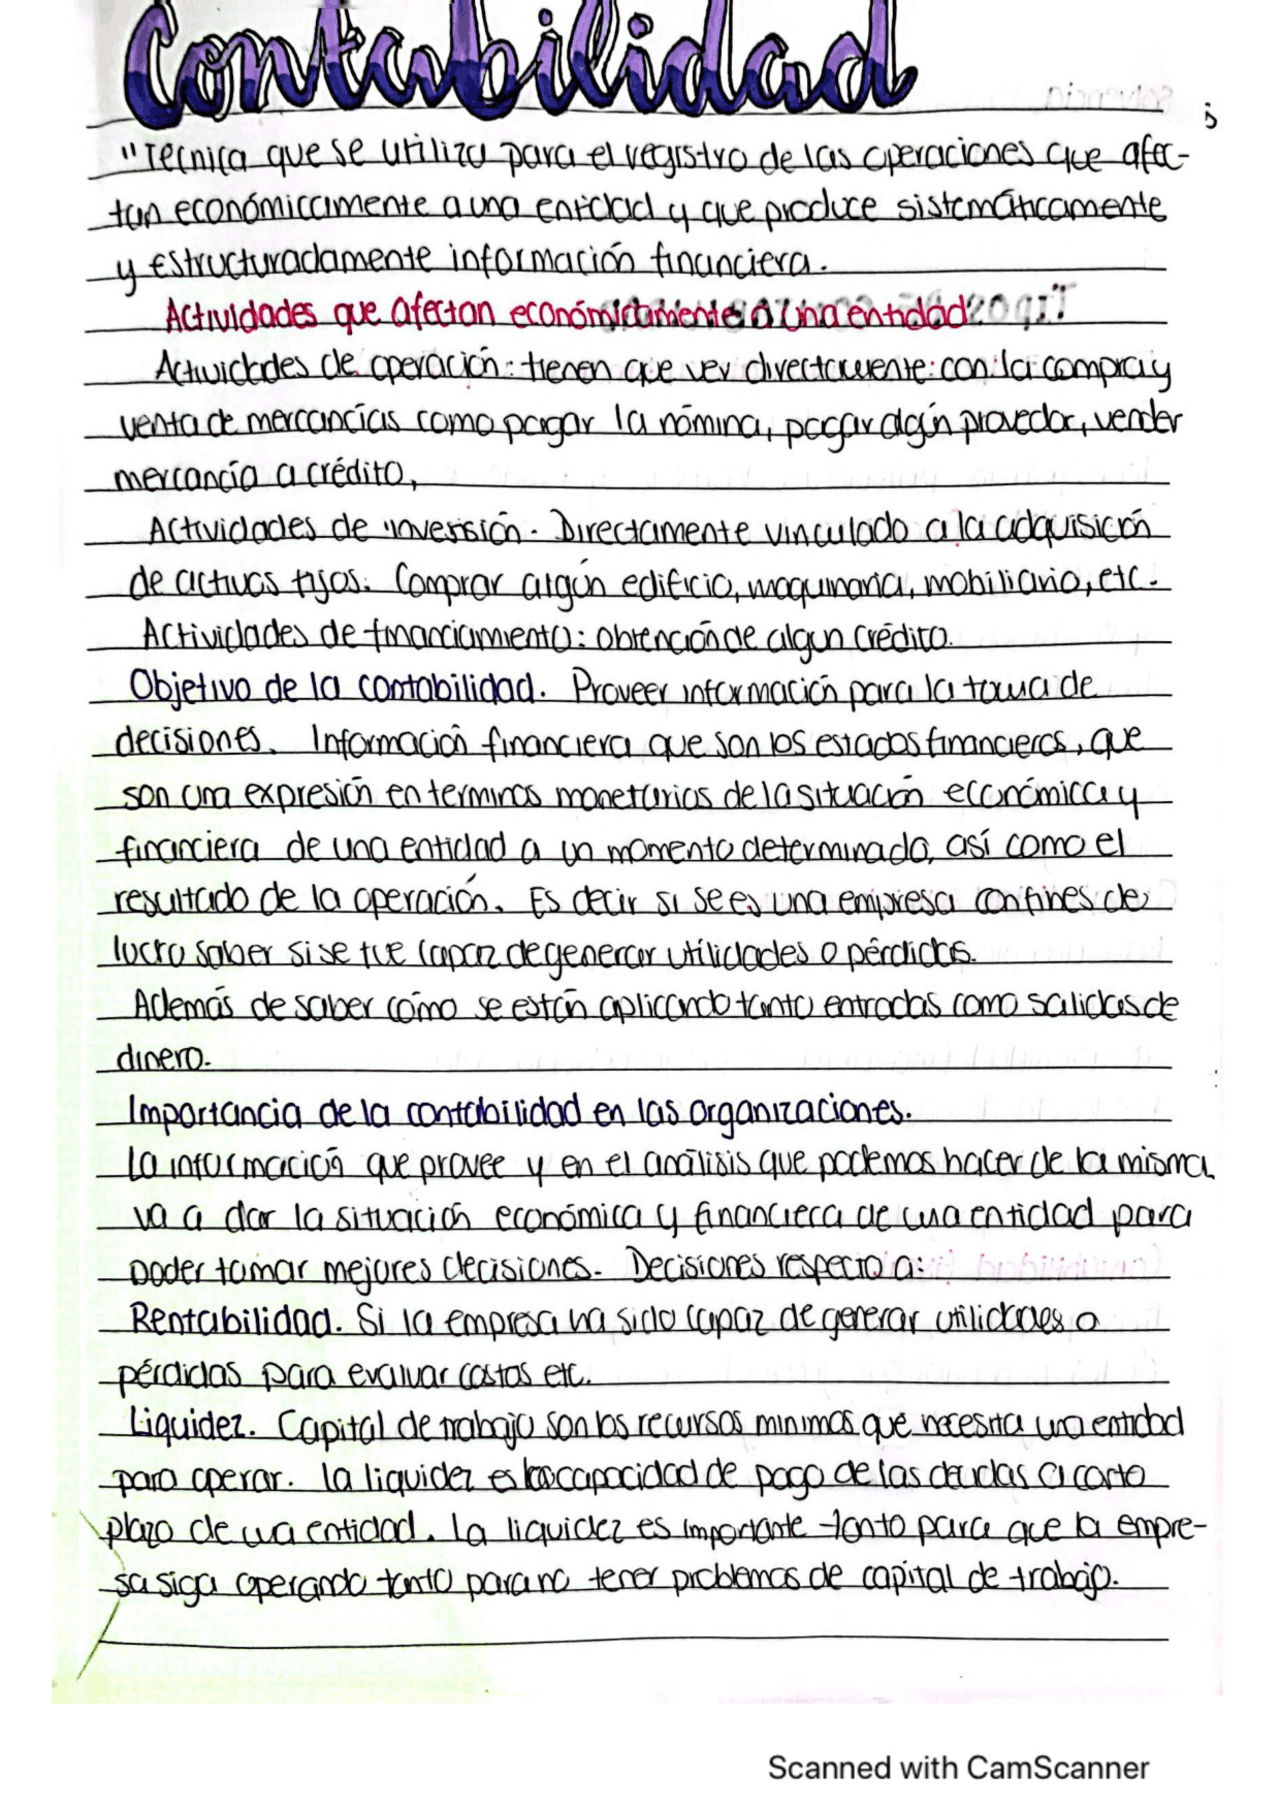 Contabilidad
"Técnica que se utiliza para el registro de las operaciones que afec-
tan económicamente a una entidad y que produce sistemáticamente
y estructuradamente información financiera.
Actividades que afectan económicamente a una entidad.
Actividades de operación: tienen que ver directamente: con la compra y
venta de mercancías como pagar la nómina, pagar algún provedor, vender
mercancía a crédito,
Actividades de inversión. Directamente vinculado a la adquisición
de activos fijos. Comprar algún edificio, maquinaria, mobiliario, etc.
Actividades de financiamiento: obtención de algun crédito.
Objetivo de la contabilidad. Proveer información para la toma de
decisiones. Información financiera que son los estados financieros, que
son una expresión en terminos monetarios de la situación económica y
financiera de una entidad a un momento determinado, así como el
resultado de la operación. Es decir si se es una empresa con fines de
lucro saber si se fue capaz de generar utilidades o pérdidas.
Además de saber cómo se están aplicando tanto entradas como salidas de
dinero.
Importancia de la contabilidad en las organizaciones.
La información que provee y en el análisis que podemos hacer de la misma
va a dar la situación económica y financiera de una entidad para
poder tomar mejores decisiones. Decisiones respecto a:
Rentabilidad. Si la empresa ha sido capaz de generar utilidades o
pérdidas para evaluar costos etc.
Liquidez. Capital de trabajo son los recursos minimos que necesita una entidad
para operar. La liquidez es la capacidad de pago de las deudas a corto
plazo de una entidad. La liquidez es importante tanto para que la empre-
sa siga operando tanto para no tener problemas de capital de trabajo.
Scanned with CamScanner